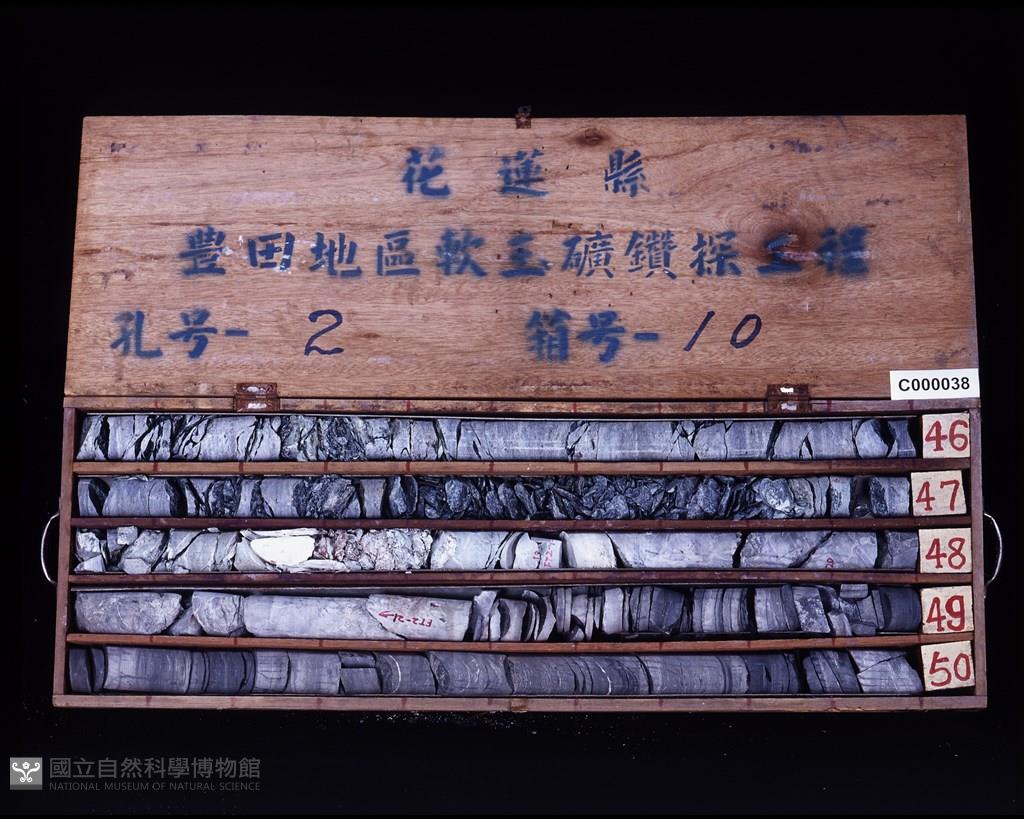 花蓮縣
豊田地區軟玉礦鑽探工程
孔号-2 箱号-10
C000038
46
47
48
49
50
國立自然科學博物館
NATIONAL MUSEUM OF NATURAL SCIENCE